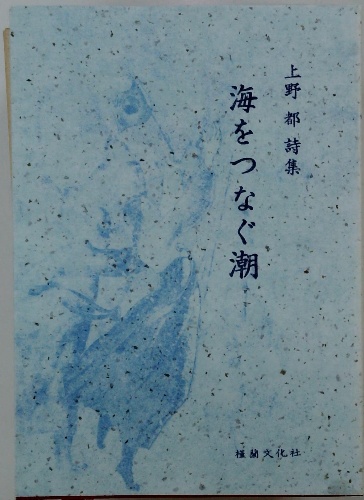 上野 都 詩集
海をつなぐ潮
槿蘭文化社